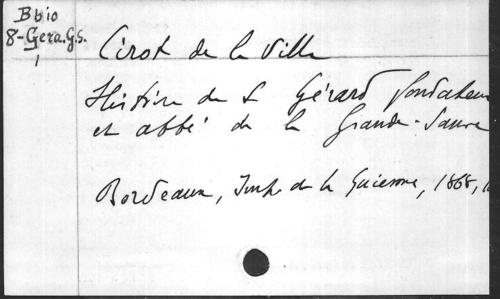 Bbio
8-Gera.G.S.
1
Cirot de la Ville
Histoire de S Gérard fondateur
et abbé de la Grande-Sauve
Bordeaux, Imp. de la Guienne, 1868,